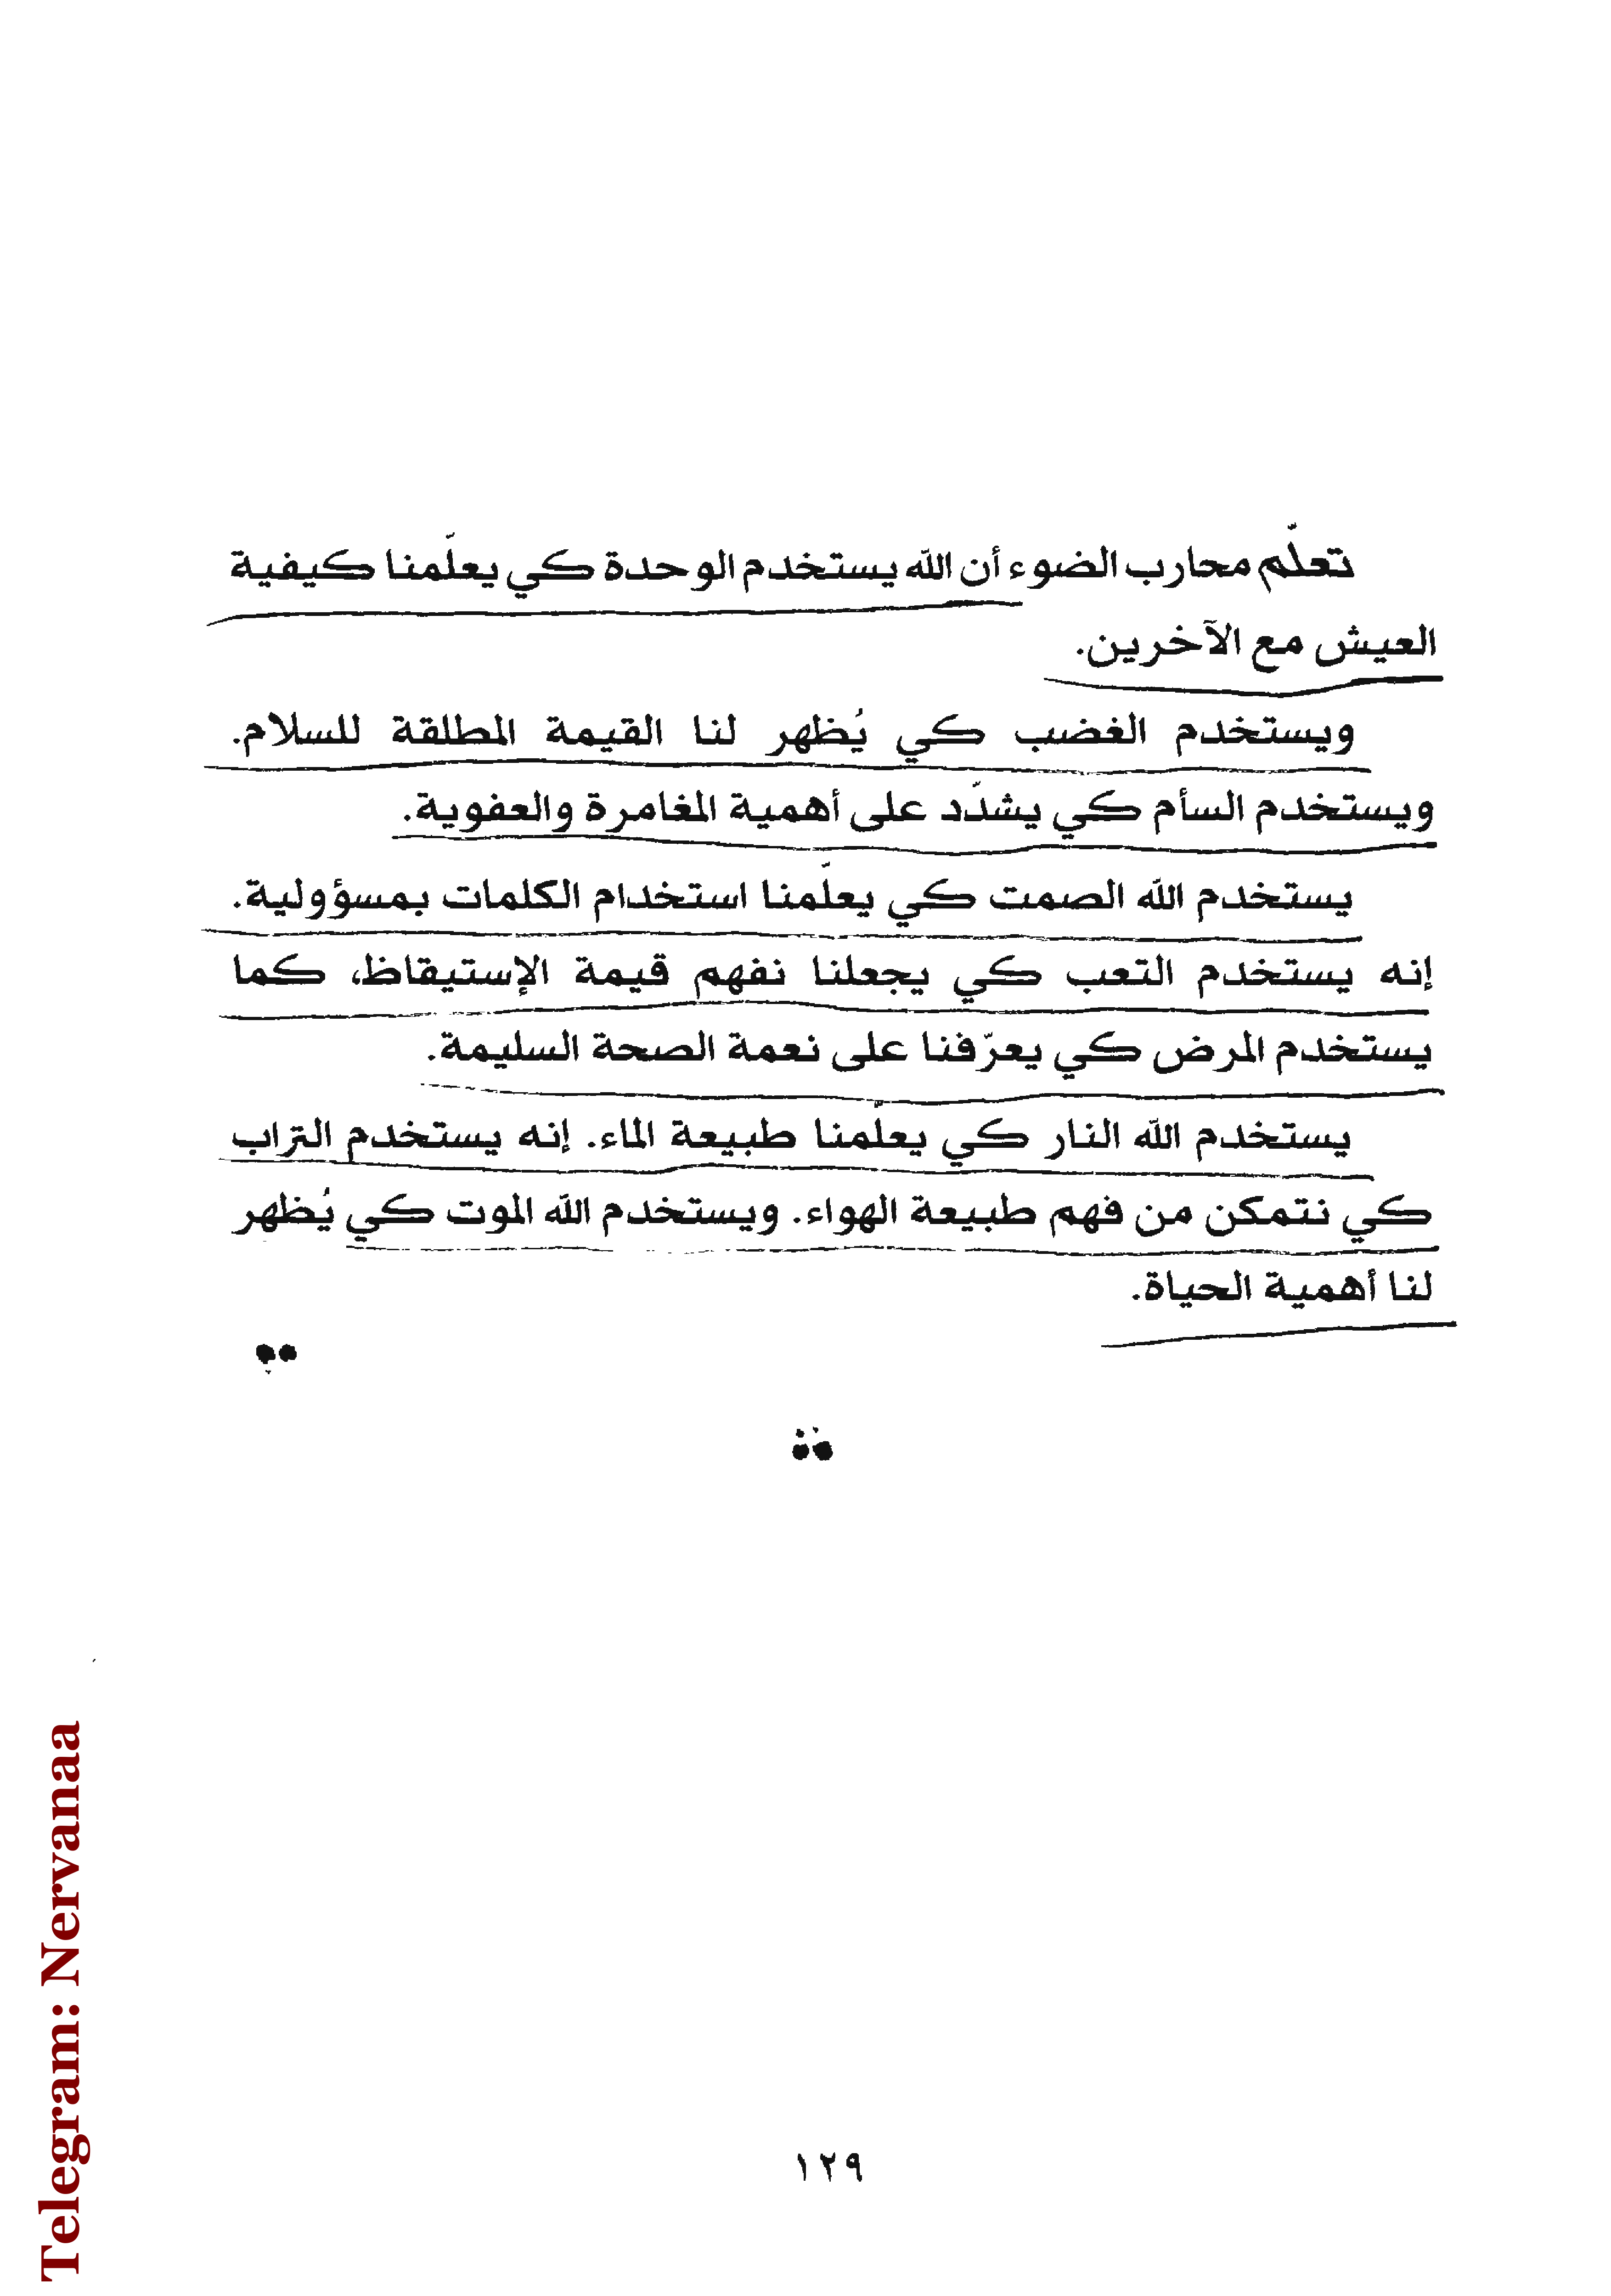 تعلّم محارب الضوء أن الله يستخدم الوحدة كي يعلّمنا كيفية
العيش مع الآخرين.
ويستخدم الغضب كي يُظهر لنا القيمة المطلقة للسلام.
ويستخدم السأم كي يشدّد على أهمية المغامرة والعفوية.
يستخدم الله الصمت كي يعلّمنا استخدام الكلمات بمسؤولية.
إنه يستخدم التعب كي يجعلنا نفهم قيمة الإستيقاظ، كما
يستخدم المرض كي يعرّفنا على نعمة الصحة السليمة.
يستخدم الله النار كي يعلّمنا طبيعة الماء. إنه يستخدم التراب
كي نتمكن من فهم طبيعة الهواء. ويستخدم الله الموت كي يُظهر
لنا أهمية الحياة.
١٢٩
Telegram: Nervanaa